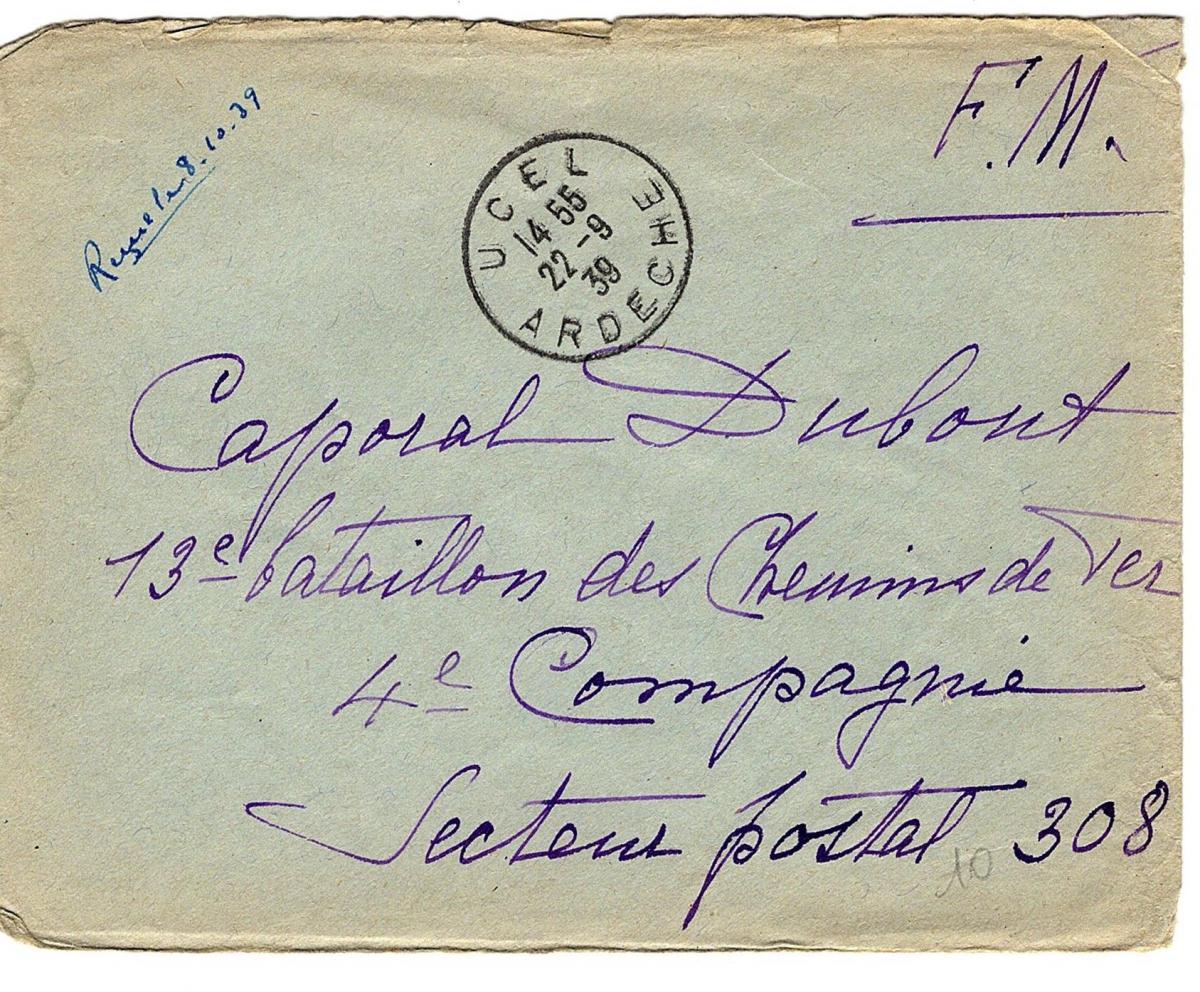 F.M.
Reçue le 8.10.39
UCEL
14 55
22 -9
39
ARDECHE
Caporal Dubout
13e bataillon des Chemins de Fer
4e Compagnie
Secteur postal 308
10